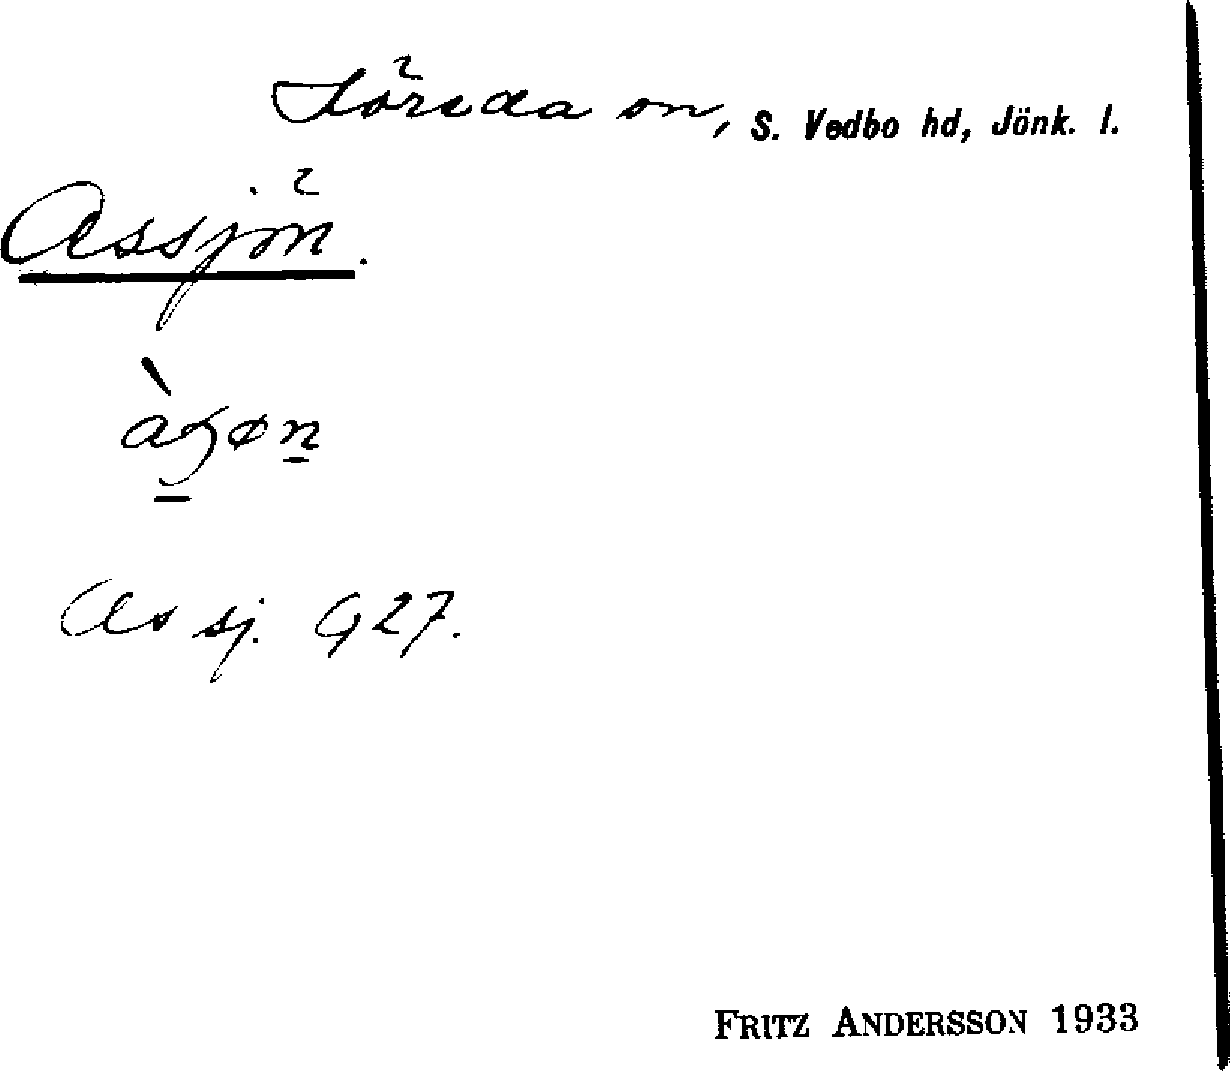 Höreda sn, S. Vedbo hd, Jönk. l.
Assjön.
As sj. G27.
FRITZ ANDERSSON 1933